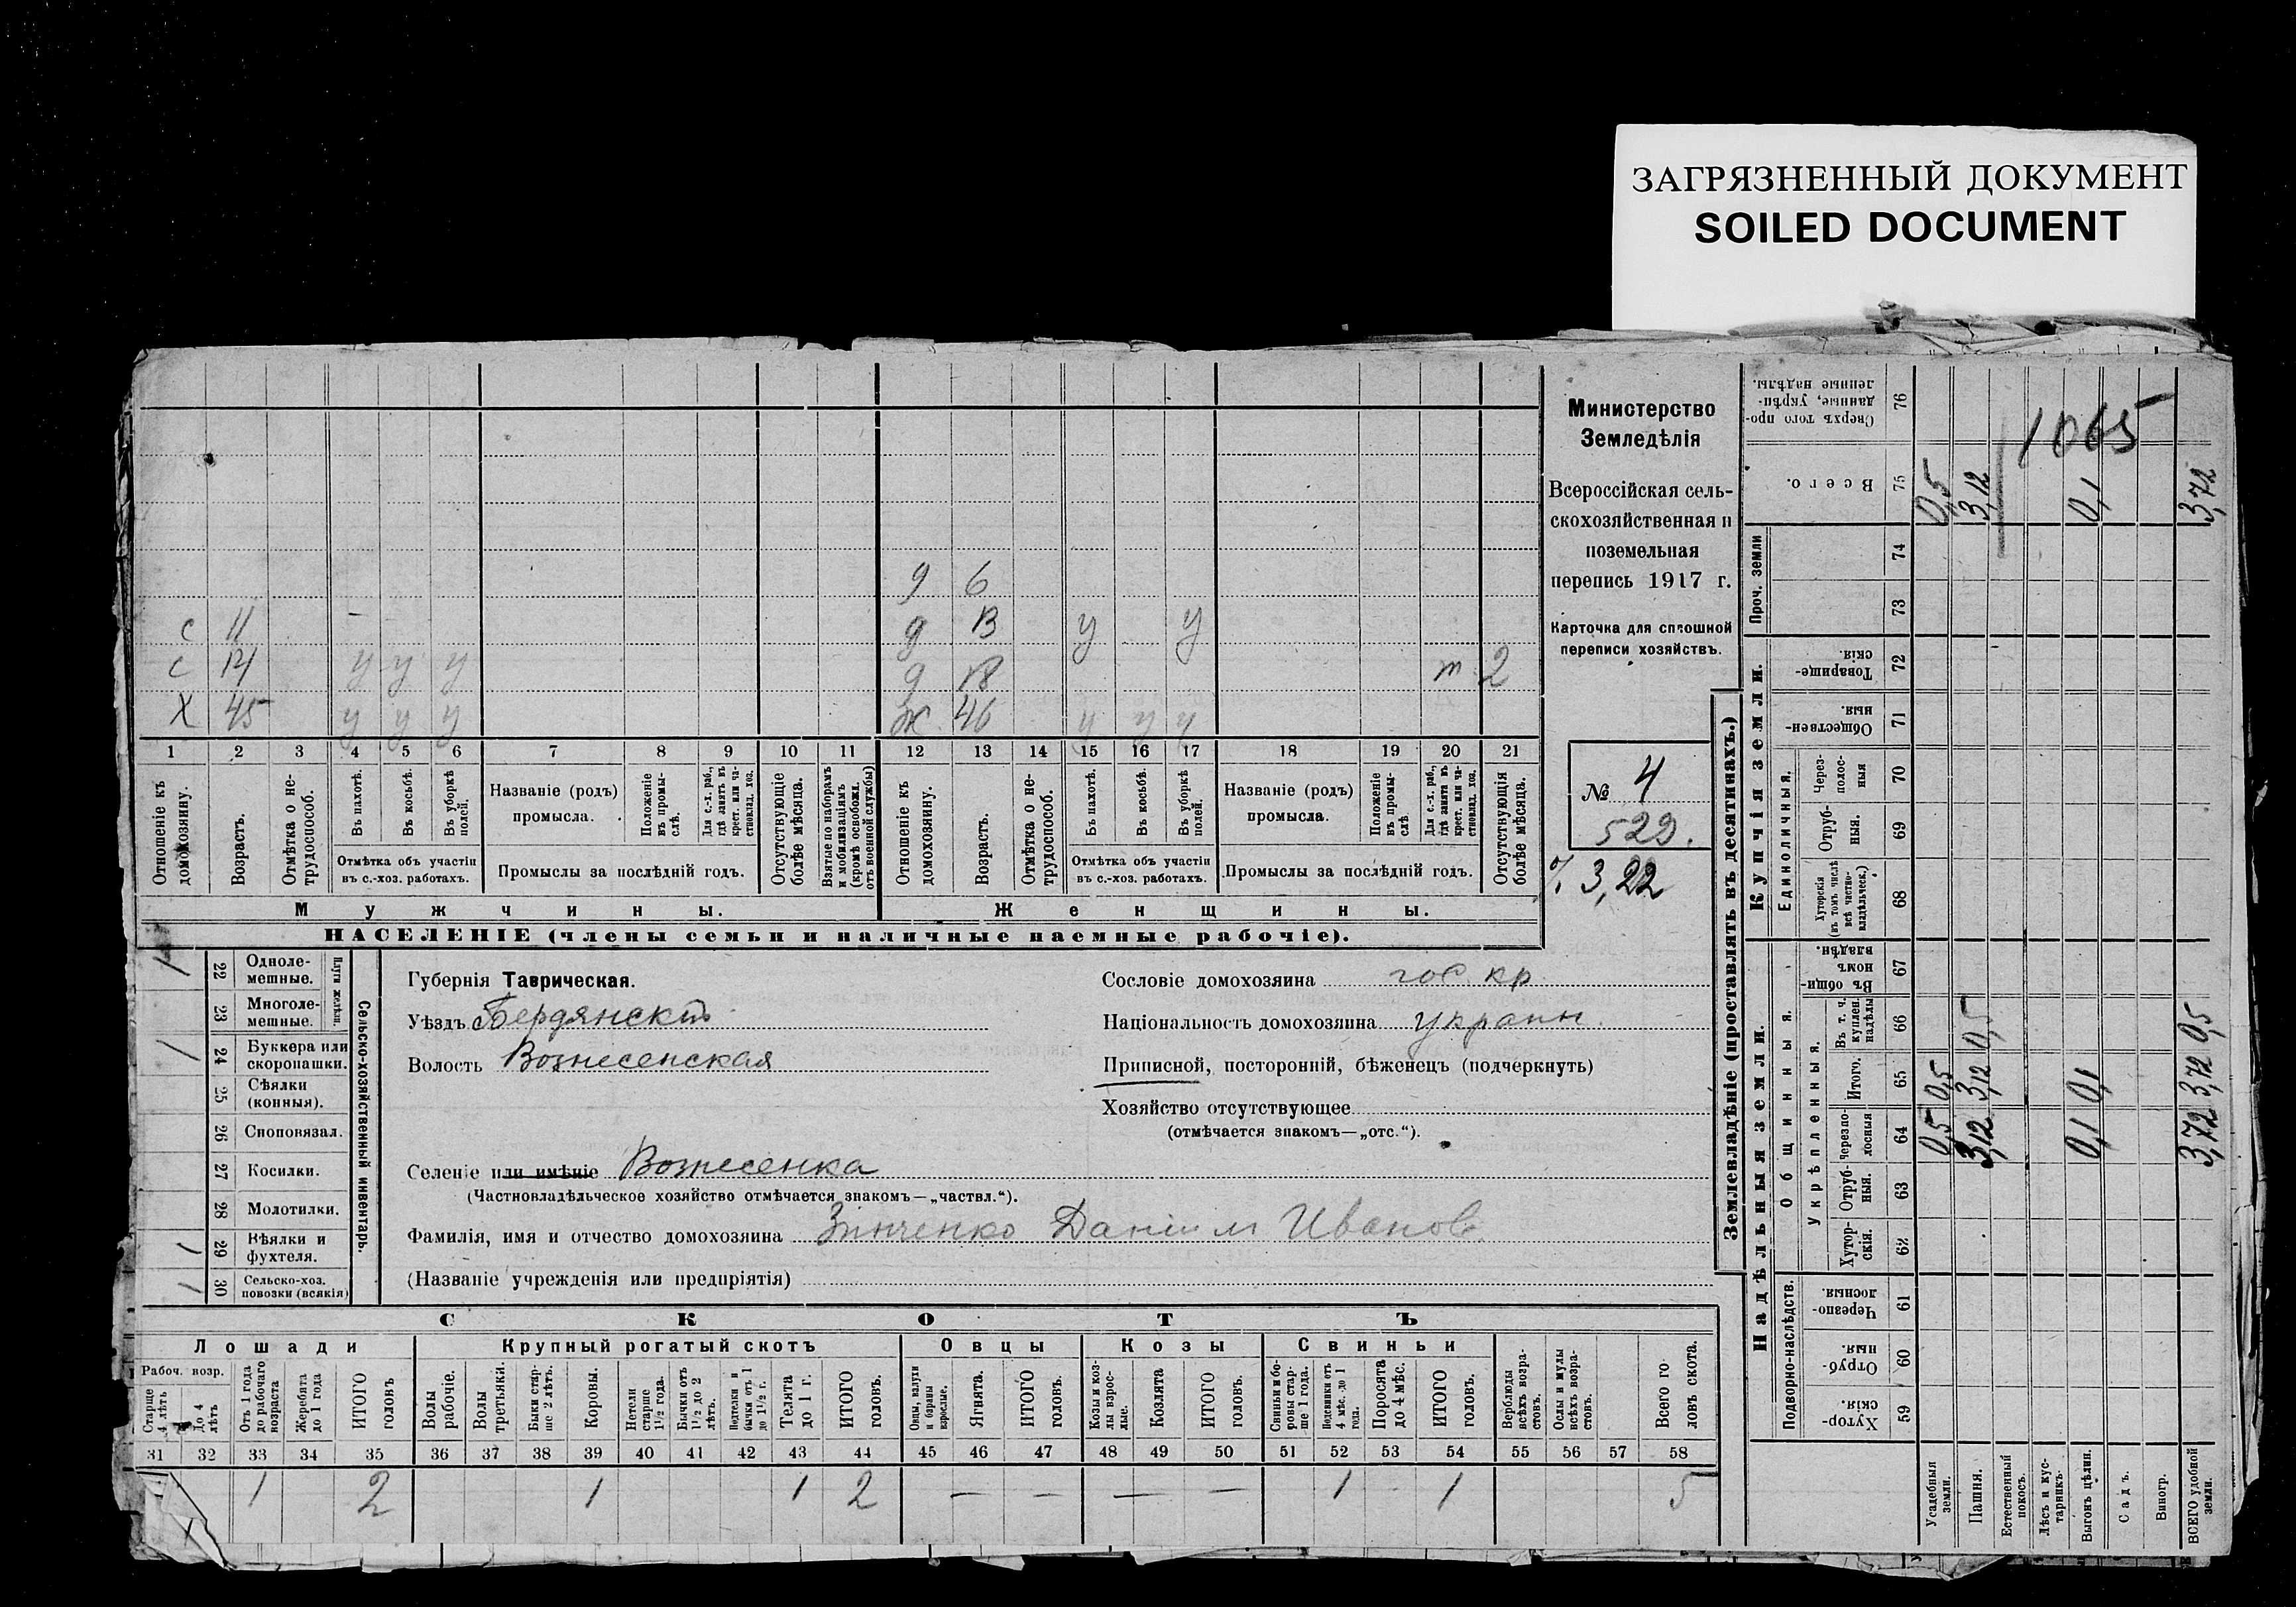 ЗАГРЯЗНЕННЫЙ ДОКУМЕНТ
SOILED DOCUMENT
Министерство
Земледѣлія
Всероссійская сель-
скохозяйственная и
поземельная
перепись 1917 г.
Карточка для сплошной
переписи хозяйствъ.
№ 4
522.
3,22
д 6
с 11 – д В у у
с 14 у у у д 18 т 2
Х 45 у у у ж 46 у у у
1 2 3 4 5 6 7 8 9 10 11 12 13 14 15 16 17 18 19 20 21
Отношеніе къ домохозяину.
Возрастъ.
Отмѣтка о не-трудоспособ.
Въ пахотѣ.
Въ косьбѣ.
Въ уборкѣ полей.
Отмѣтка объ участіи
въ с.-хоз. работахъ.
Названіе (родъ)
промысла.
Положеніе въ промы-слѣ.
Для с.-х. раб., гдѣ занятъ въ крест. или ча-стновлад. хоз.
Промыслы за послѣдній годъ.
Отсутствующіе болѣе мѣсяца.
Взятые по наборамъ и мобилизаціямъ (кромѣ освобожд. отъ военной службы)
Отношеніе къ домохозяину.
Возрастъ.
Отмѣтка о не-трудоспособ.
Въ пахотѣ.
Въ косьбѣ.
Въ уборкѣ полей.
Отмѣтка объ участіи
въ с.-хоз. работахъ.
Названіе (родъ)
промысла.
Положеніе въ промы-слѣ
Для с.-х. раб., гдѣ занята въ крест. или ча-стновлад. хоз.
Промыслы за послѣдній годъ.
Отсутствующія болѣе мѣсяца.
Мужчины.
Женщины.
НАСЕЛЕНІЕ (члены семьи и наличные наемные рабочіе).
1 22 Одноле-мешные.
23 Многоле-мешные.
Плуги желѣзн.
1 24 Буккера или скоропашки.
25 Сѣялки (конныя).
26 Сноповязал.
27 Косилки.
28 Молотилки.
1 29 Вѣялки и фухтеля.
1 30 Сельско-хоз. повозки (всякія)
Сельско-хозяйственный инвентарь.
Губернія Таврическая.
Уѣздъ Бердянскій
Волость Вознесенская
Сословіе домохозяина гос. кр.
Національность домохозяина украин.
Приписной, посторонній, бѣженецъ (подчеркнуть)
Хозяйство отсутствующее
(отмѣчается знакомъ—„отс.“).
Селеніе или имѣніе Вознесенка
(Частновладѣльческое хозяйство отмѣчается знакомъ—„частвл.“).
Фамилія, имя и отчество домохозяина Зінченко Даніил Иванов
(Названіе учрежденія или предпріятія)
СКОТЪ
Лошади
Крупный рогатый скотъ
Овцы
Козы
Свиньи
Рабоч. возр.
Старше 4 лѣтъ
До 4 лѣтъ
Отъ 1 года до рабочаго возраста
Жеребята до 1 года
ИТОГО головъ
Волы рабочіе.
Волы третьяки.
Быки стар-ше 2 лѣтъ.
Коровы.
Нетели старше 1½ года.
Бычки отъ 1½ до 2 лѣтъ.
Подтелки и бычки отъ 1 до 1½ г.
Телята до 1 г.
ИТОГО головъ.
Овцы, валухи и бараны взрослые.
Ягнята.
ИТОГО головъ.
Козы и коз-лы взрос-лые.
Козлята
ИТОГО головъ.
Свиньи и бо-ровы стар-ше 1 года.
Подсвинки отъ 4 мѣс. до 1 года.
Поросята до 4 мѣс.
ИТОГО головъ.
Верблюды всѣхъ возра-стовъ.
Ослы и мулы всѣхъ возра-стовъ.
Всего го ловъ скота.
31 32 33 34 35 36 37 38 39 40 41 42 43 44 45 46 47 48 49 50 51 52 53 54 55 56 57 58
1 2 1 1 2 — — — — 1 1 5
Землевладѣніе (проставлять въ десятинахъ.)
Надѣльныя земли.
Купчія земли.
Проч. земли
Сверхъ того про-даные, укрѣп-ленные надѣлы. 76
Всего. 75 0,5 3,12 0,1 3,72
1065
74
73
Товарище-скія. 72
Обществен-ныя. 71
Единоличныя.
Через-полос-ныя 70
Отруб-ныя. 69
Хуторскія (въ томъ числѣ всѣ частно-владѣльческ.) 68
Общинныя.
Въ общи-номъ владѣн. 67
Укрѣпленныя.
Въ т. ч. куплен. надѣлы 66 0,5 0,5
Итого. 65 0,5 3,12 0,1 3,72
Черезпо-лосныя 64 0,5 3,12 0,1 3,72
Отруб-ныя. 63
Хутор-скія. 62
Подворно-наслѣдств.
Черезпо-лосныя. 61
Отруб-ныя. 60
Хутор-скія. 59
Усадебныя земли.
Пашня.
Естественный покосъ.
Лѣсъ и кус-тарникъ.
Выгонъ цѣлин.
Садъ.
Виногр.
ВСЕГО удобной земли.